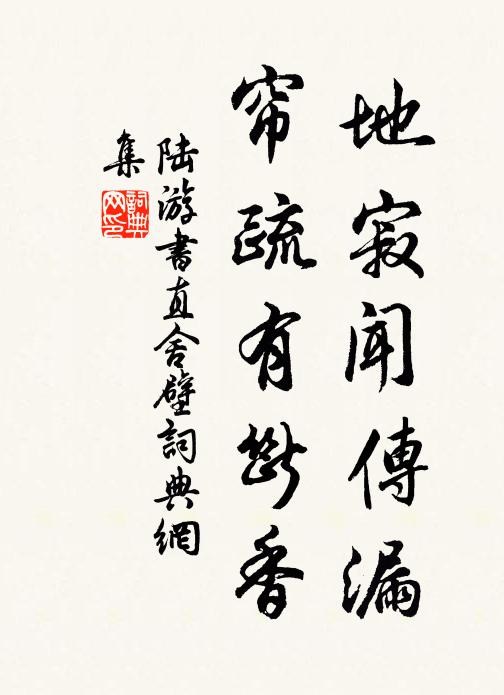 地寂聞傳漏
帘疏有斷香
陆游書直舍壁詞典網
集
詞典
网印